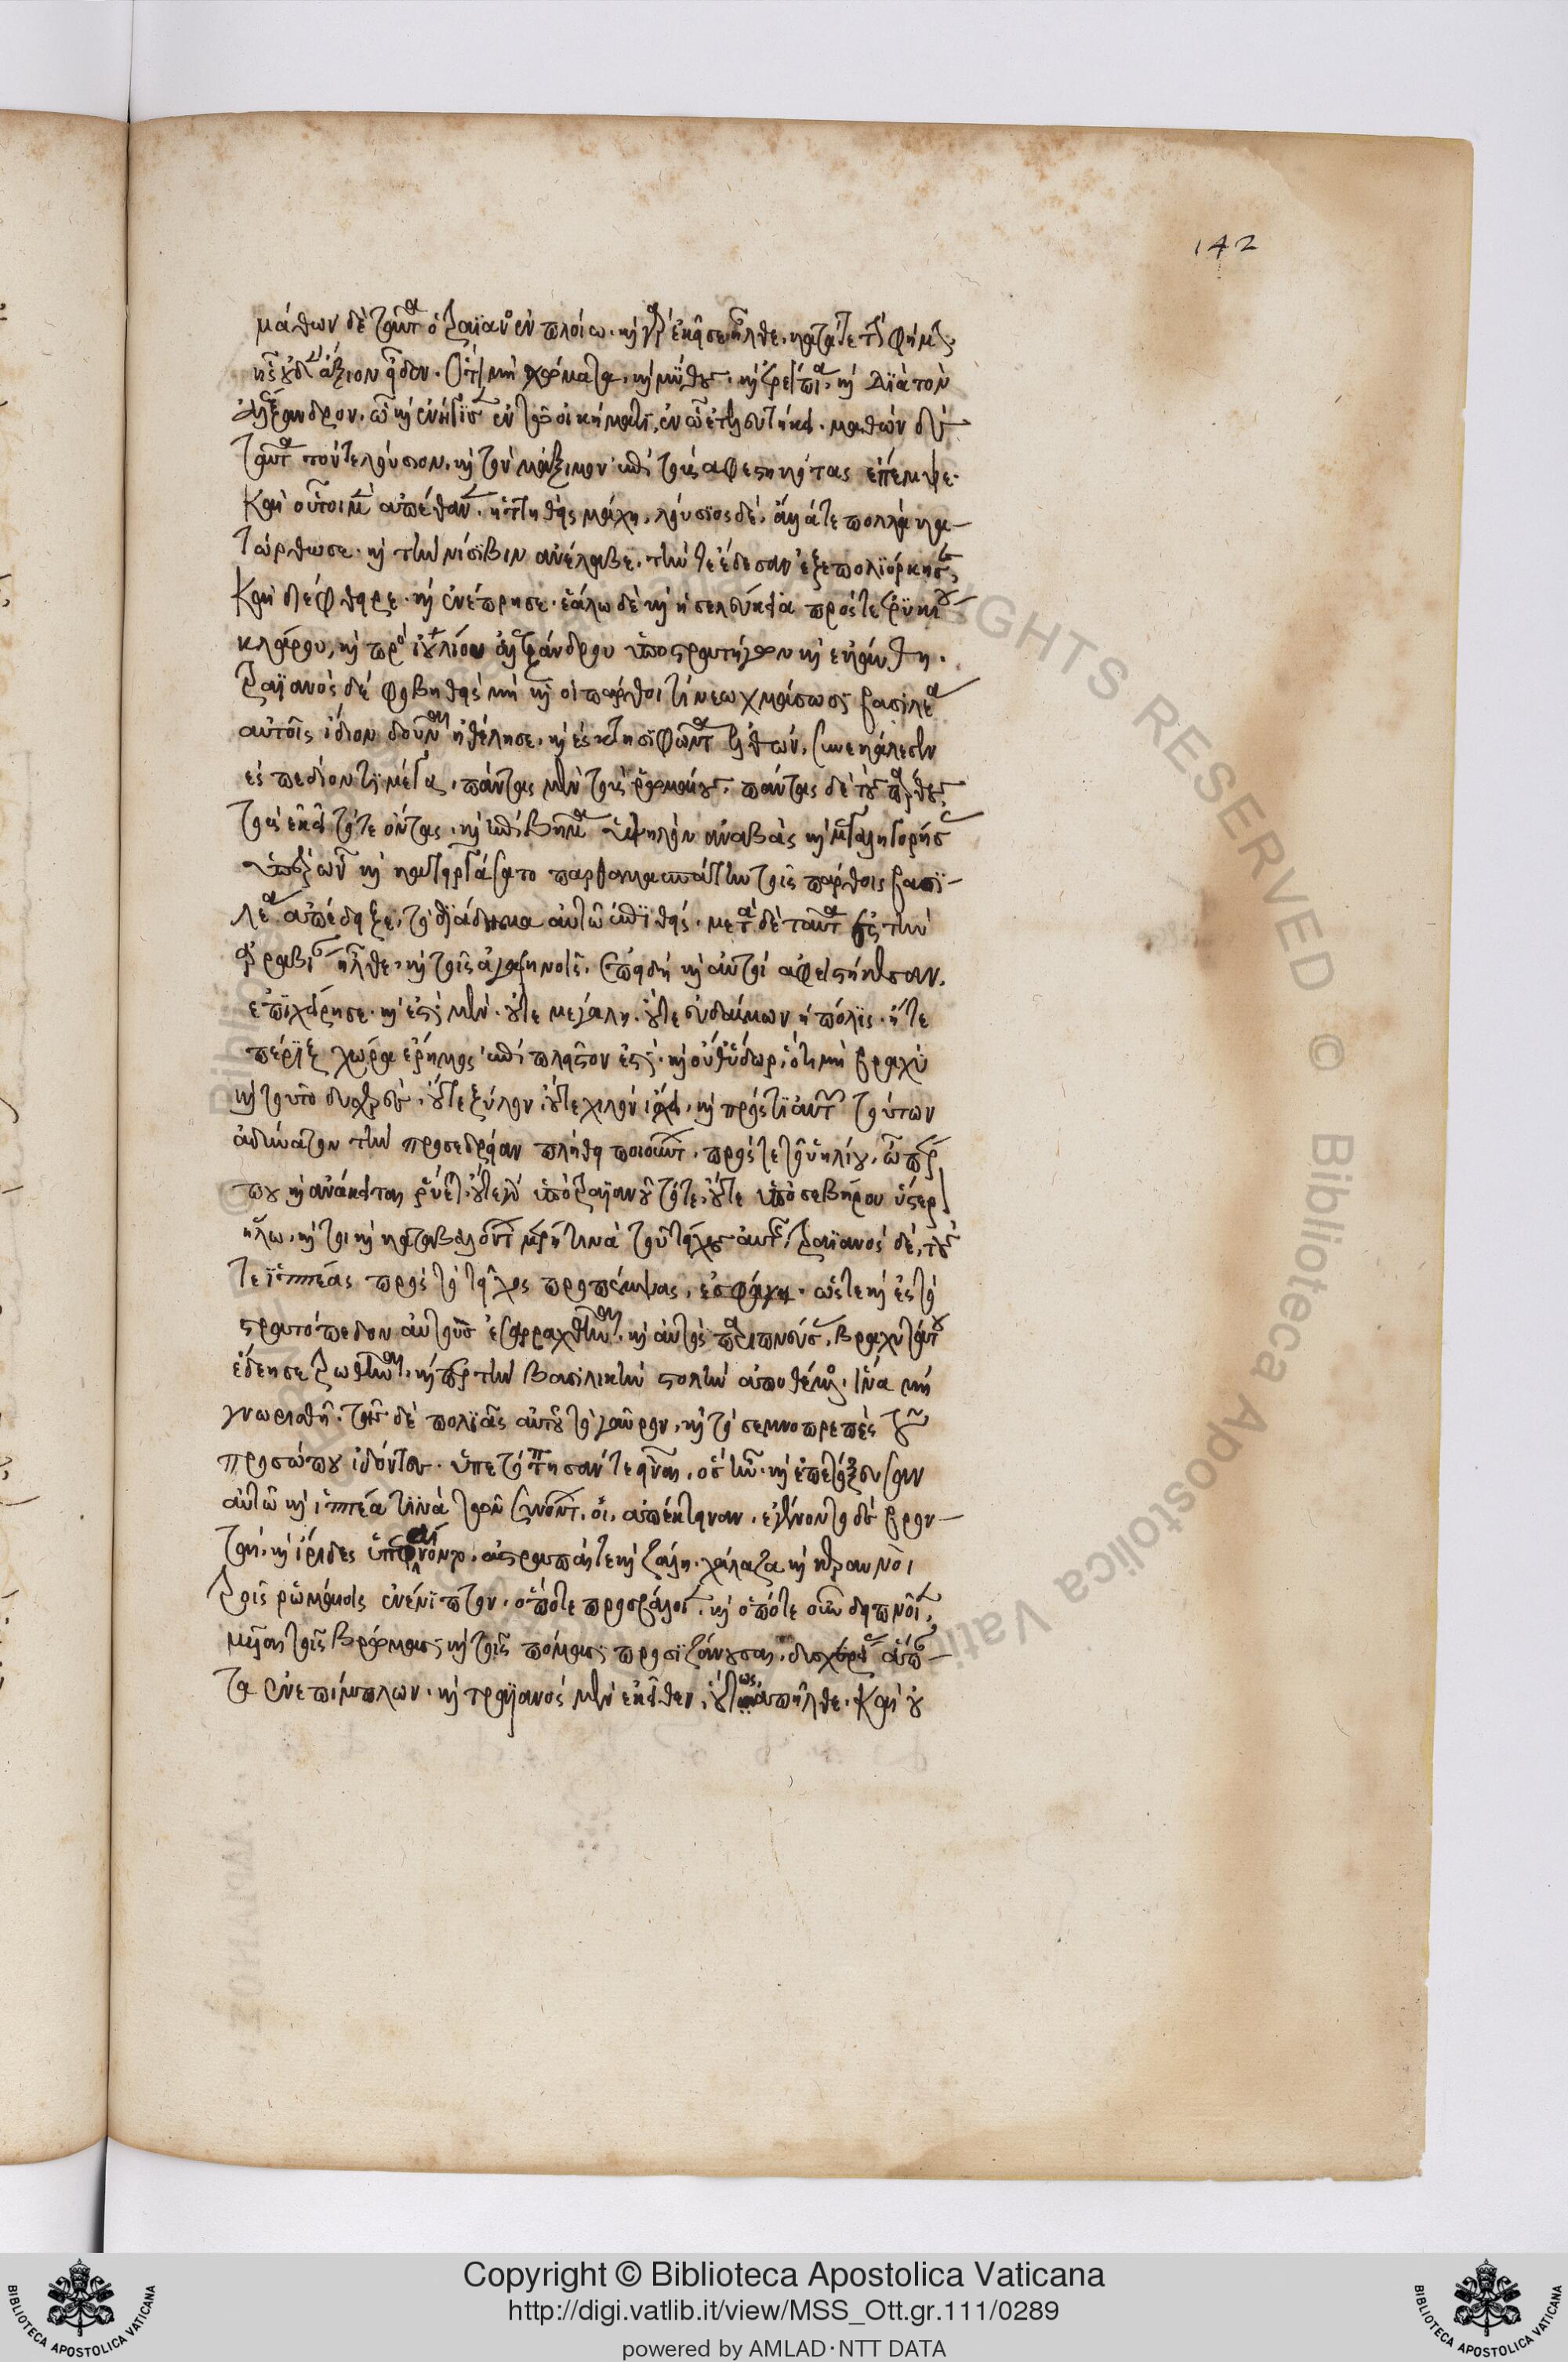 142
μάθων δὲ ταῦτα ὁ τραϊανὸς ἐν πλοίω. καὶ γὰρ ἐκεῖσε ἦλθε. κατά τε τὴν φήμην
ἧς οὐδὲν ἄξιον εἶδεν. ὅτι μὴ χώματα. καὶ μύθους. καὶ ἐρείπια. καὶ διὰ τὸν
ἀλέξανδρον. ὧ καὶ ἐνήγισεν ἐν τῶ οἰκήματι, ἐν ὧ ἐτετελευτήκει. μαθὼν δὲ
ταῦτα τόν τε λούσιον. καὶ τὸν μάξιμον ἐπὶ τοὺς ἀφεστηκότας ἔπεμψε.
καὶ οὗτος μὲν ἀπέθανεν. ἡττηθεὶς μάχη. λούσιος δὲ. ἄλλα τε πολλὰ κα-
τώρθωσε. καὶ τὴν νίσιβιν ἀνέλαβε. τήν τε ἔδεσαν ἐξεπολιόρκησε,
καὶ διέφθειρε. καὶ ἐνέπρησε. ἑάλω δὲ καὶ ἡ σελεύκεια πρός τε ἐρυκίου
κλάρου, καὶ πρὸς ἰουλίου ἀλεξάνδρου ὑποστρατήγων καὶ ἐκαύθη.
τραϊανὸς δὲ φοβηθεὶς μὴ καὶ οἱ πάρθοι τι νεοχμώσωσι βασιλέα
αὐτοῖς ἴδιον δοῦναι ἠθέλησε. καὶ ἐς κτησιφῶντα ἐλθών. συνεκάλεσεν
ἐς πεδίον τι μέγα. πάντας μὲν τοὺς ῥωμαίους. πάντας δὲ τοὺς πάρθους
τοὺς ἐκεῖ τότε ὄντας. καὶ ἐπὶ βῆμα ὑψηλὸν ἀναβὰς καὶ μεγαληγορήσας
ὑπὲρ ὧν καὶ κατειργάσατο παρθαμασπάτην τοῖς πάρθοις βασι-
λέα ἀπέδειξε, τὸ διάδημα αὐτῶ ἐπιθείς. μετὰ δὲ ταῦτα ἐς τὴν
ἀραβίαν ἦλθε. καὶ τοῖς ἀγαρηνοῖς. ἐπειδὴ καὶ αὐτοὶ ἀφειστήκεσαν.
ἐπεχείρησε. καὶ ἔστι μὲν. οὔτε μεγάλη. οὔτε εὐδαίμων ἡ πόλις. ἥ τε
πέριξ χώρα ἔρημος ἐπὶ πλεῖστον ἐστὶ. καὶ οὔθ' ὕδωρ. ὅτι μὴ βραχὺ
καὶ τοῦτο δυσχερὲς. οὔτε ξύλον. οὔτε χιλὸν ἴσχει. καὶ πρός τι αὐτῶν τούτων
ἀδύνατον τὴν προσεδρείαν πλήθει ποιοῦντα. πρός τε τοῦ ἡλίου. ὧπερ
που καὶ ἀνάκειται ῥύεται. οὔτε γὰρ ὑπὸ τραϊανοῦ τότε. οὔτε ὑπὸ σεβήρου ὕστερον
ἥλω. καίτοι καὶ καταβαλόντα μέρη τινὰ τοῦ τείχους αὐτῆς. τραϊανὸς δὲ. τοὺς
τε ἱππέας πρὸς τὸ τεῖχος προπέμψας. ἐσφάλη. ὥστε καὶ ἐς τὸ
στρατόπεδον αὐτοὺς ἐσαραχθῆναι. καὶ αὐτὸς παριππεύσας. βραχὺ γὰρ τοῦ
ἐδέησε τρωθῆναι. καίπερ τὴν βασιλικὴν στολὴν ἀποθέμενος. ἵνα μὴ
γνωρισθῆ. τῆς δὲ πολιᾶς αὐτοῦ τὸ γαῦρον. καὶ τὸ σεμνοπρεπὲς τοῦ
προσώπου ἰδόντες. ὑπετόπησάν τε εἶναι. ὃς ἦν. καὶ ἐπετόξευσαν
αὐτῶ καὶ ἱππέα τινὰ τῶν συνόντων. οἱ. ἀπέκτειναν. ἐγίνοντο δὲ βρον-
ταὶ. καὶ ἴριδες ὑπεφαίνοντο. ἀστραπαί τε καὶ ζάλη. χάλαζα καὶ κεραυνοὶ
τοῖς ῥωμαίοις ἐνέπιπτον. ὁπότε προσβάλοιεν. καὶ ὁπότε οὖν δειπνοῖεν,
μυῖαι τοῖς βρώμασι καὶ τοῖς πόμασι προσιζάνουσαι. δυσχερείας ἅπαν-
τα ἐνεπίμπλων. καὶ τραϊανὸς μὲν ἐκεῖθεν. οὕτως ἀπῆλθε. καὶ οὐ
Copyright © Biblioteca Apostolica Vaticana
http://digi.vatlib.it/view/MSS_Ott.gr.111/0289
powered by AMLAD·NTT DATA